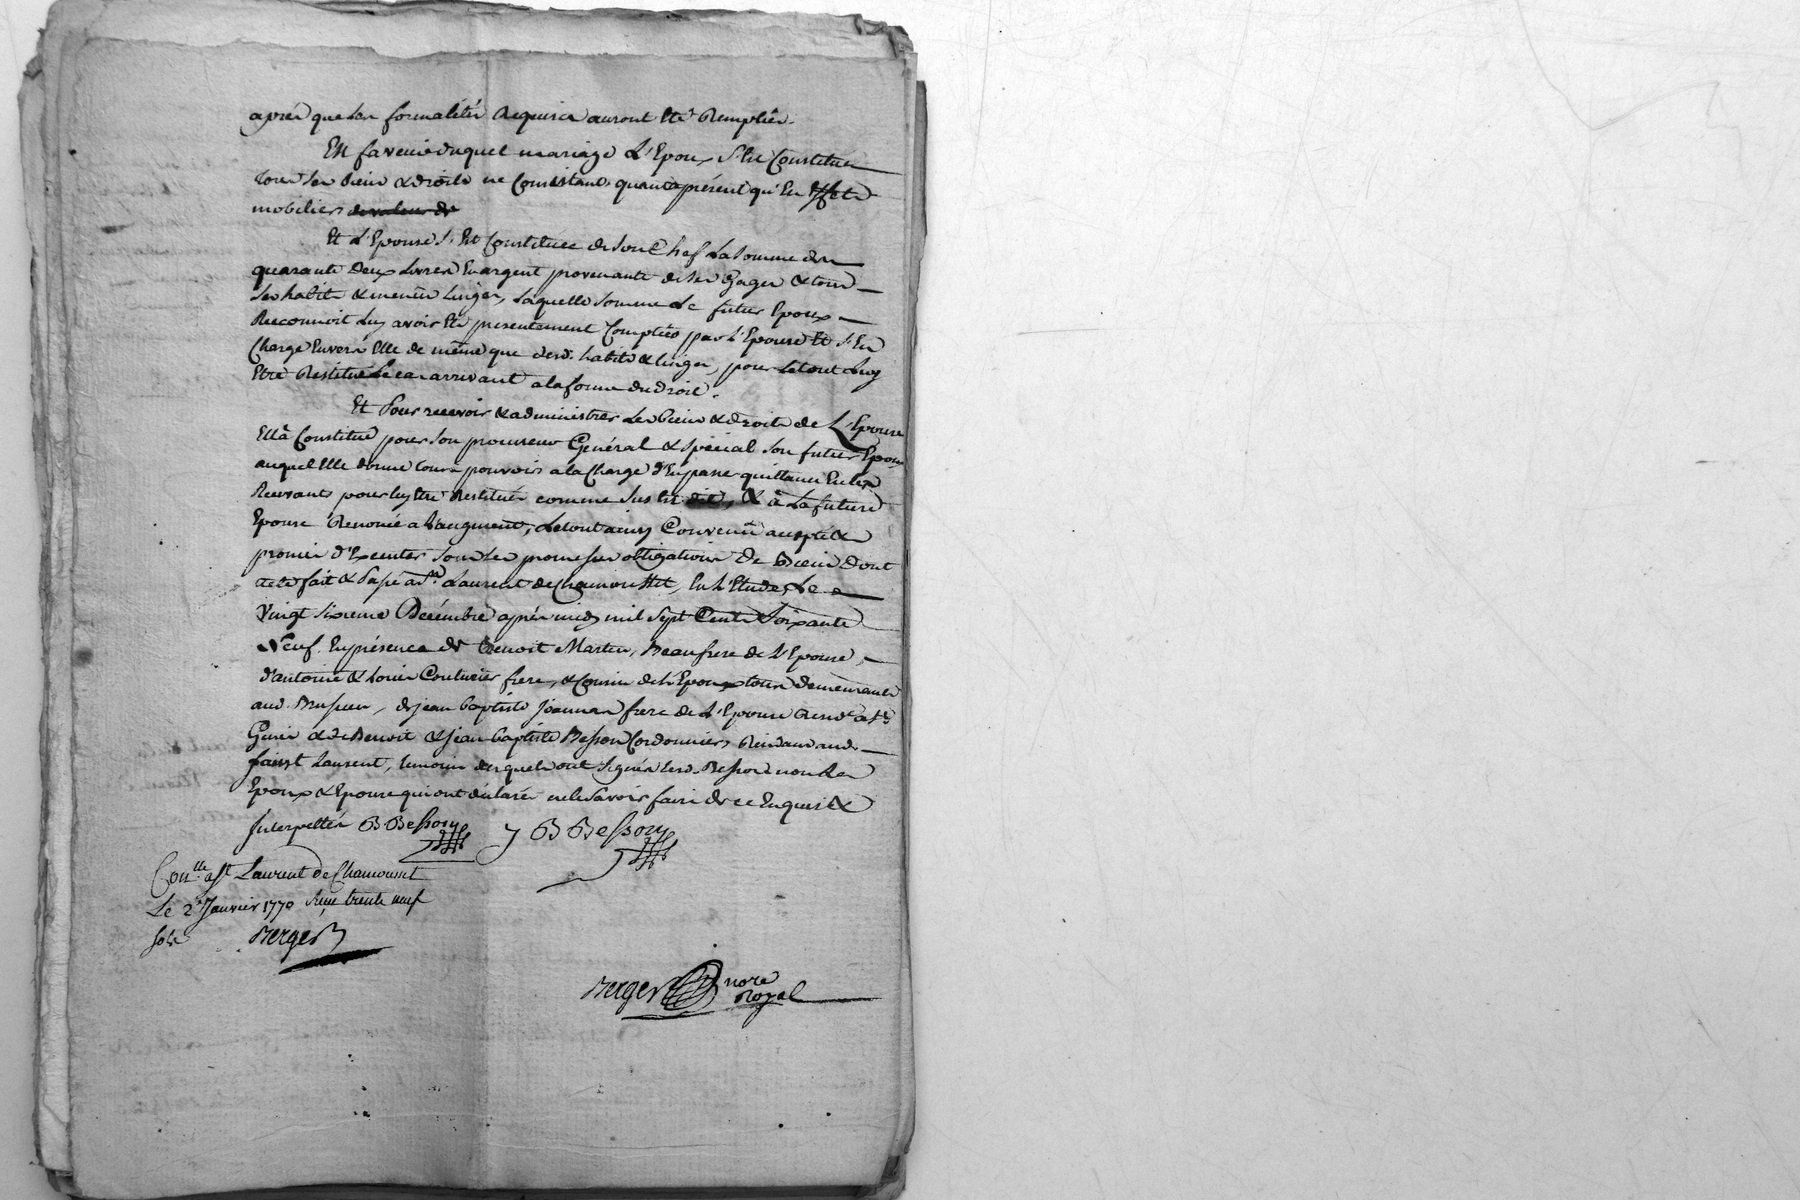 après que les formalités Requises auront Eté Remplies.
En faveur duquel mariage L'Epoux S'est Constitué
tous ses biens & droits ne Consistants quant aprésent qu'En Effets
mobiliers de valeur de
Et L'Epouse S'Est Constituée de Son Chef La Somme de
quarante Deux Livres En argent provenante de Ses Gages & tous
Ses habits & menus Linges, Laquelle Somme Le futur Epoux
Reconnoit Luy avoir Eté presentement Comptée par L'Epouse Et S'En
Charge Envers Elle de même que desd. habits & Linges, pour Le tout Luy
Etre Restitué Le cas arrivant a la forme du Droit.
Et Pour recevoir & administrer Les biens & Droits de L'Epouse
Ella Constitué pour Son procureur Général & Spécial Son futur Epoux
auquel Elle donne tours pouvoirs a la Charge d'En passer quittance En les
Recevants pour luy Etre Restitués comme Sus Est dit, & à La future
Epouse Renoncé a L'augment, Le tout ainsy Convenu accepté &
promis d'Executer Sous Les promesses obligations De Biens Dont
acte fait & Passé a St Laurent de Chamoussét, En L'Etude, Le
Vingt Sixieme Decémbre après midy mil Sept Cents Soixante
Neuf. En présence de Benoit Martin, Beaufrere de L'Epouse,
d'antoine & Louis Couturier frere, & Cousin de L'Epoux tous demeurants
aud. Brussieu, de jean Baptiste Joannas frere de L'Epouse Resid.t a St
Genis & de Benoit & jean Baptiste Besson Cordonniers Residants aud.
faint Laurent, temoins desquels ont Signés Lesd. Besson non Les
Epoux & Epouse qui ont déclaré ne le Savoir faire de ce Enquis &
Interpellés B Besson J B Besson
Con.lle a St Laurent de Chamousset
Le 2e Janvier 1770 Reçu trente neuf
Sols Berger
Berger nore
Royal